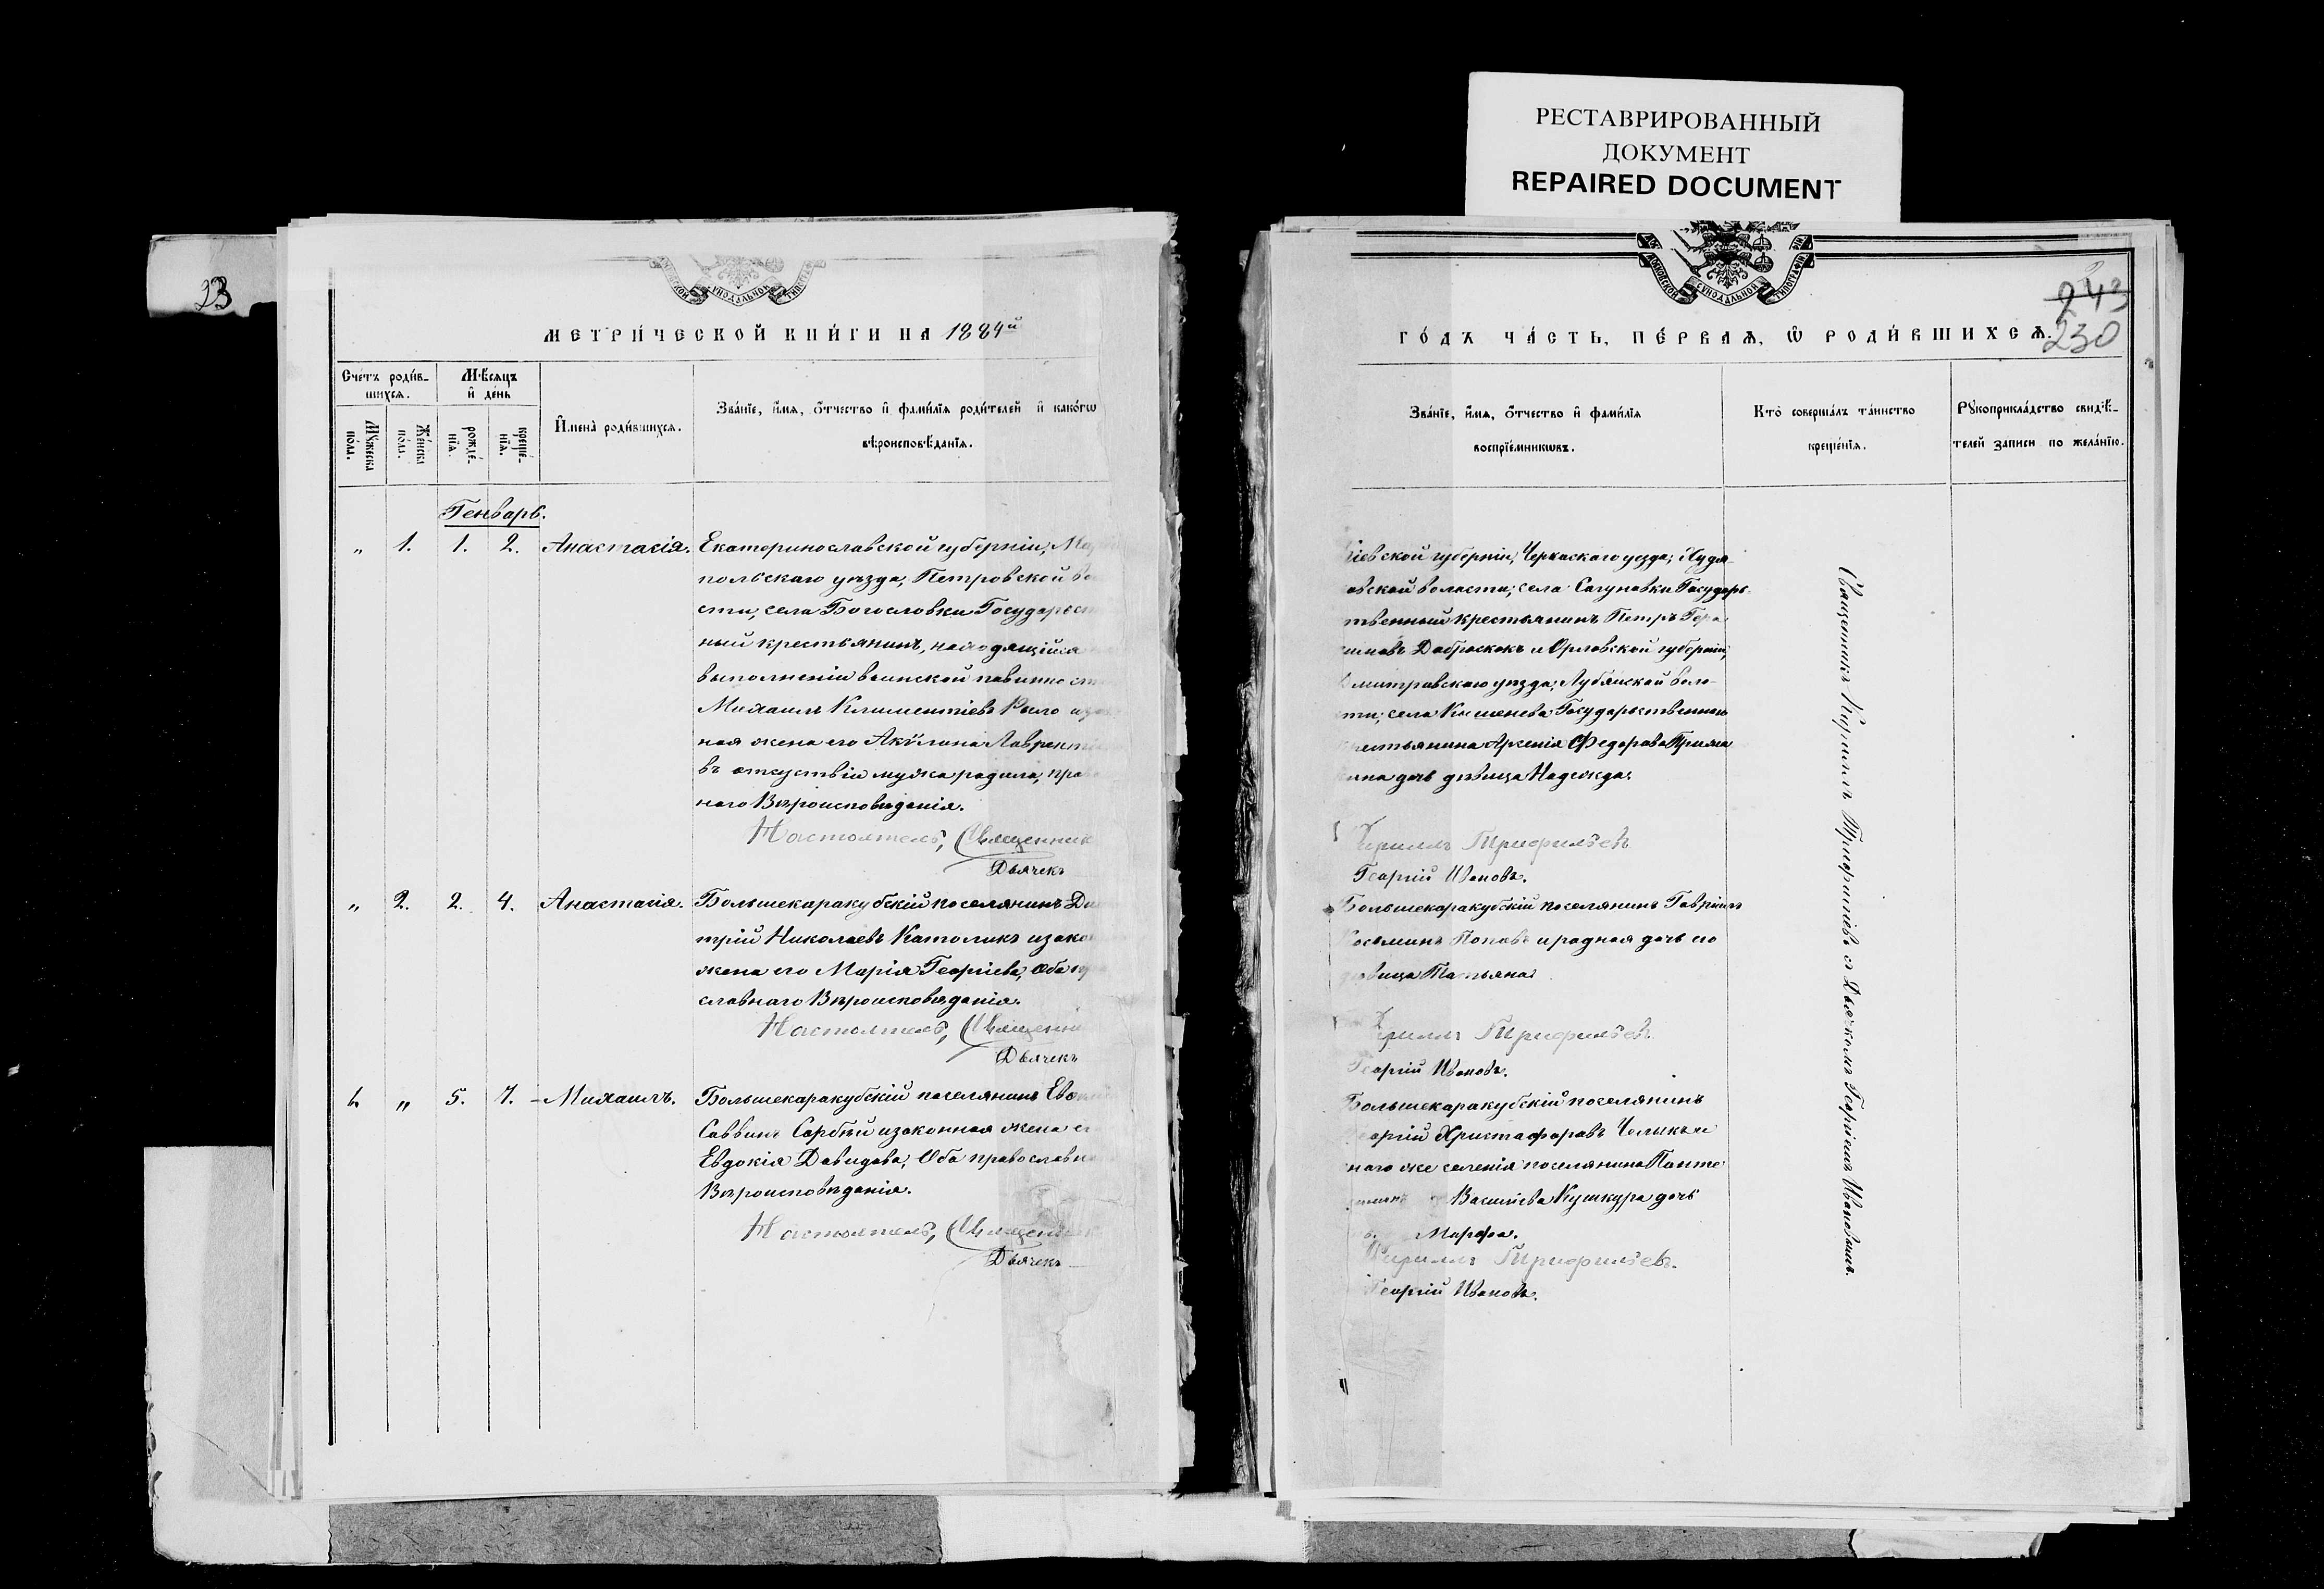 РЕСТАВРИРОВАННЫЙ
ДОКУМЕНТ
REPAIRED DOCUMENT
23
МЕТРИ́ЧЕСКОЙ КНИ́ГИ НА 1884й
Сче́тъ роди́в-
шихсѧ.
Мѣ́сѧцъ
и҆ де́нь
Мꙋ́жеска
по́ла.
Же́нска
по́ла.
рожде́-
нїѧ.
креще́-
нїѧ.
И҆мена̀ роди́вшихсѧ.
Зва́нїе, и҆́мѧ, ѻ҆́тчество и҆ фами́лїѧ роди́телей и҆ како́гѡ
вѣроисповѣ́данїѧ.
Генварь.
„ 1. 1. 2. Анастасія. Екатеринославской губерніи, Ма
польскаго уѣзда, Петровской во
сти, села Богословки Государст
ный крестьянинъ, находящійся
выполненіи воинской повинност
Михаилъ Климентіевъ Рыло и
ная жена его Акѵлина Лаврент
въ отсуствіи мужа родила, пра
наго Вѣроисповѣданія.
Настоятель, Священник
Дьячекъ
„ 2. 2. 4. Анастасія. Большекаракубскій поселянинъ Ди
трій Николаевъ Католикъ и зако
жена его Марія Георгіева, Оба п
славнаго Вѣроисповѣданія.
Настоятель, Священни
Дьячекъ
1. „ 5. 7. Михаилъ. Большекаракубскій поселянинъ Ев
Саввинъ Сарбѣй и законная жена е
Евдокія Давидова, Оба православн
Вѣроисповѣданія.
Настоятель, Священник
Дьячекъ
243
230
ГО́ДЪ ЧА́СТЬ, ПЕ́РВАѦ, Ѡ҆ РОДИ́ВШИХСѦ.
Зва́нїе, и҆́мѧ, ѻ҆́тчество и҆ фами́лїѧ
воспрїе́мникѡвъ.
Кто̀ соверша́лъ та́инство
креще́нїѧ.
Рꙋкоприкла́дство свидѣ́-
телей записи по жела́нїю.
іевской губерніи, Черкаскаго уѣзда, Худя
овской волости, села Сагуновки Государс
твенный крестьянинъ Петръ Гера
имовъ Доброскокъ и Орловской губерніи,
митровскаго уѣзда, Лубянской воло-
сти, села Кошенева Государственнаго
рестьянина Арсенія Федорова
кина дочь дѣвица Надежда.
Кириллъ Трифильевъ
Георгій Ивановъ.
Большекаракубскій поселянинъ Гавріилъ
Косьминъ Поповъ и родная дочь его
дѣвица Татьяна.
Кириллъ Трифильевъ
Георгій Ивановъ.
Большекаракубскій поселянинъ
еоргій Христофоровъ Челикъ и
наго же селенія поселянина Панте
Васильева Кушкура дочь
Марфа.
Кириллъ Трифильевъ.
Георгій Ивановъ.
Священникъ Кириллъ Трифиліевъ съ Дьячкомъ Георгіемъ Ивановымъ.